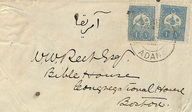 آمریقا
ADANA
W.W. Peet Esq.
Bible House
Congregational House
Boston